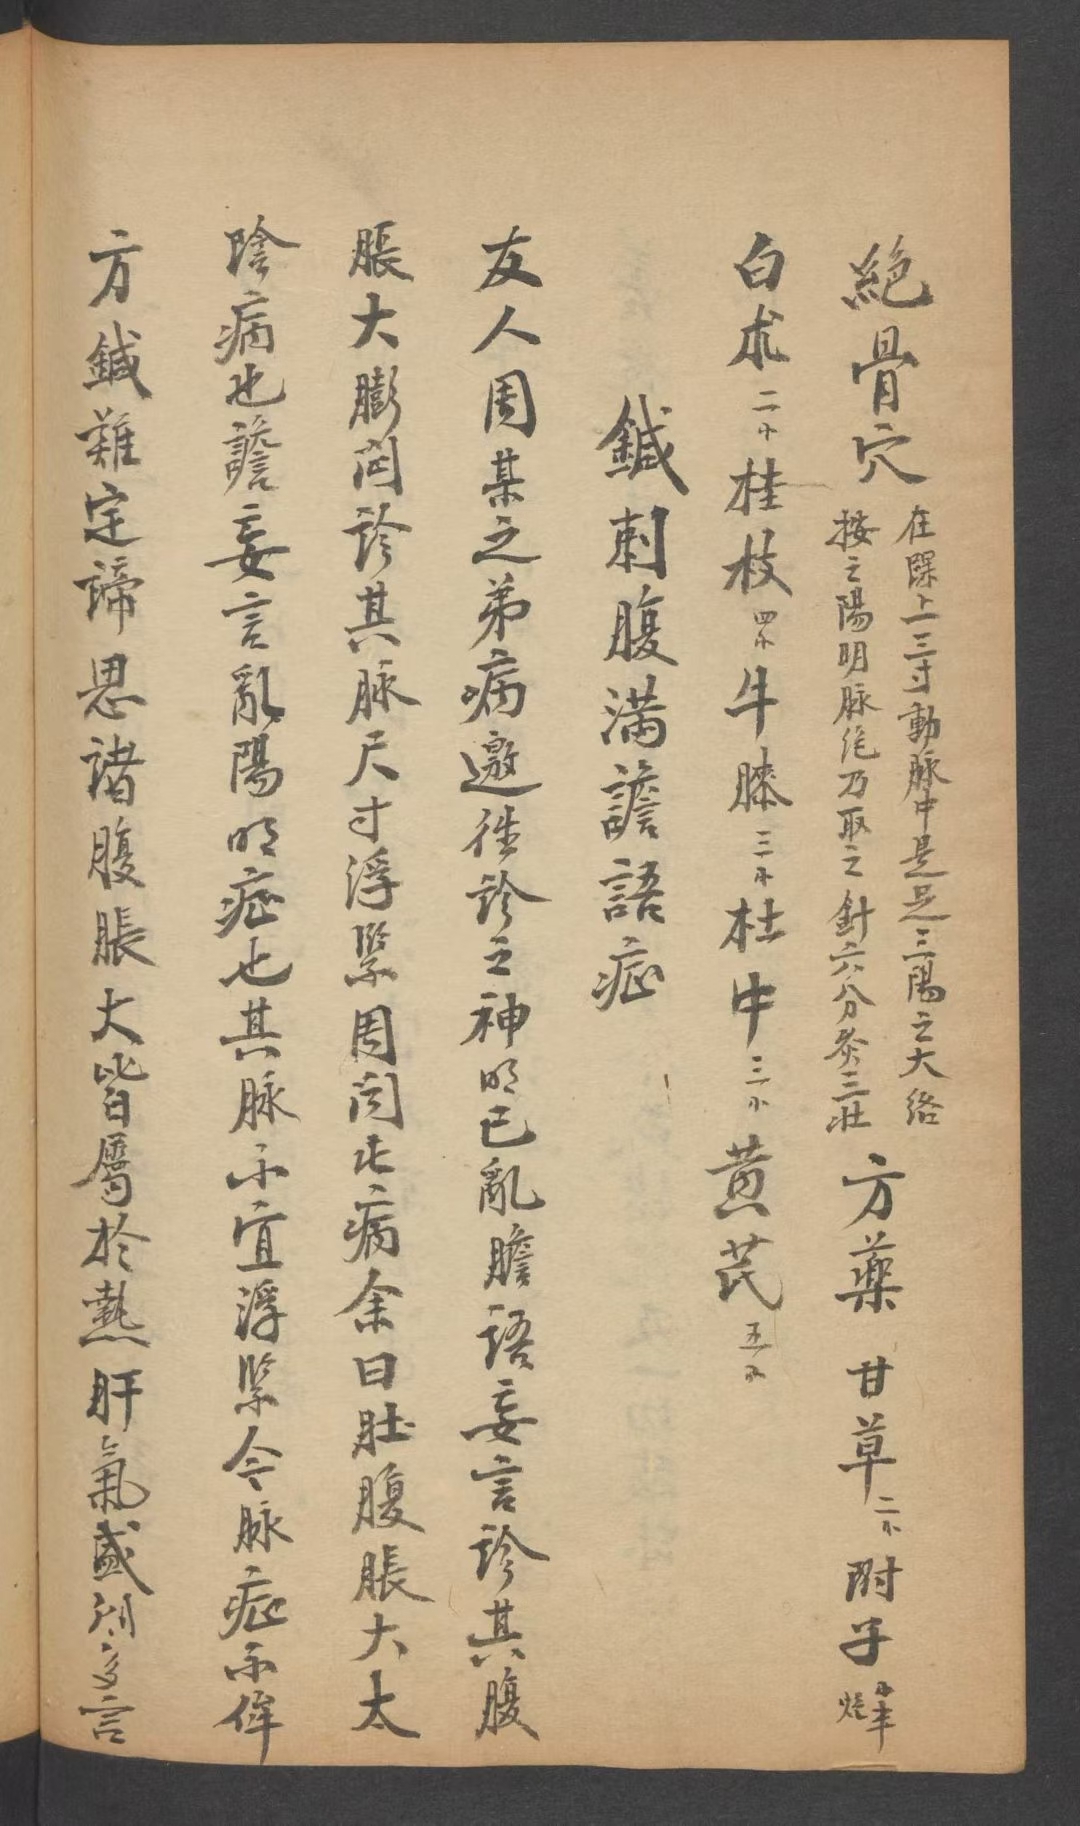 絶骨穴 在踝上三寸動脉中是足三陽之大絡 按之陽明脉绝乃取之針六分灸三壯 方藥 甘草二小 附子
白朮二小桂枝四小牛膝三小杜中三小黄芪五小
鍼刺腹满譫語症
友人周某之弟病邀徃診之神明已亂膽語妄言診其腹
脹大膨闷診其脉尺寸浮緊周问此病余曰肚腹脹大太
陰病也譫妄言亂陽明症也其脉不宜浮緊今脉症不侔
方鍼難定諦思諸腹脹大皆屬於熱肝氣盛則多言